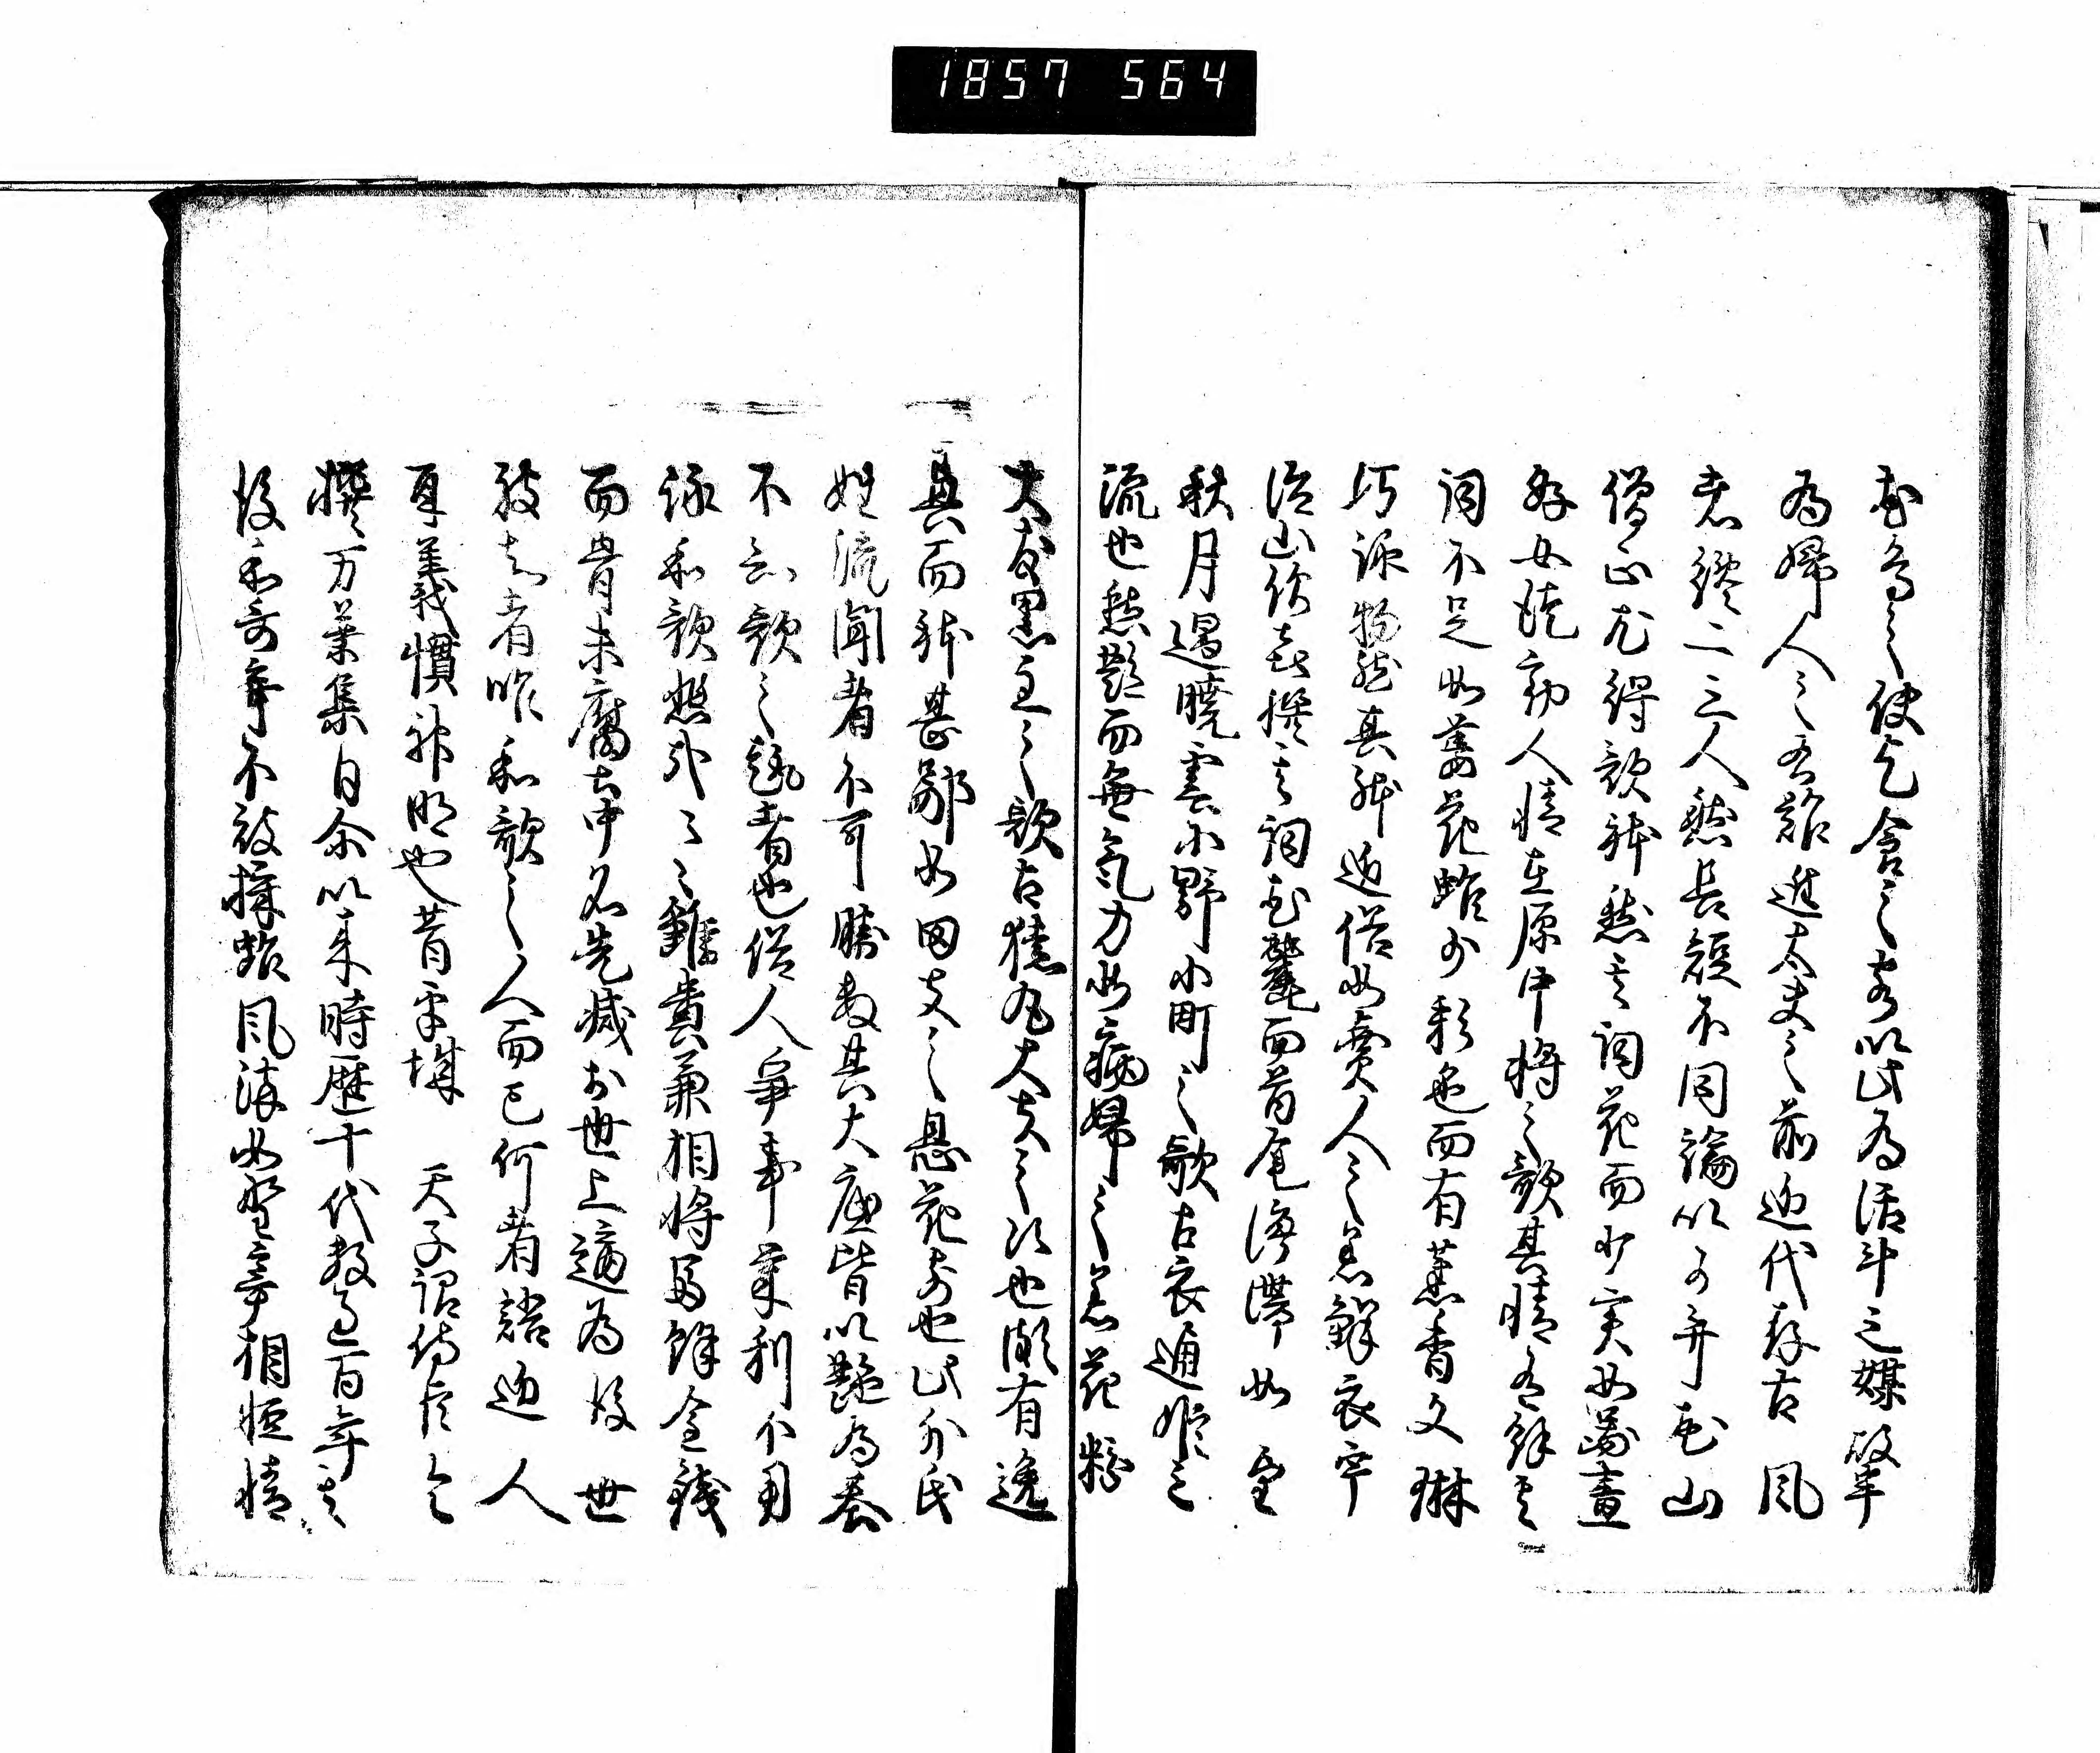 1857 564
花鳥之使乞食之客以此為活計之媒故半
為婦人之右難進大夫之前近代存古風
者纔二三人然長短不同論以可弁花山
僧正尤得歌体然其詞花而少実如図画
好女徒動人情在原中将之歌其情有餘其
詞不足如萎花雖少彩色而有薫香文琳
巧詠物然其体近俗如賈人之着鮮衣宇
治山僧喜撰其詞花麗而首尾停滞如望
秋月遇暁雲小野小町之歌古衣通姫之
流也然艶而無気力如病婦之着花粉
大友黒主之歌古猿丸大夫之次也頗有逸
興而体甚鄙如田夫之息花前也此外氏
姓流聞者不可勝数其大底皆以艶為基
不知歌之趣者也俗人争事栄利不用
詠和歌悲哉々々雖貴兼相将富餘金銭
而骨未腐土中名先滅於世上適為後世
被知者唯和歌之人而已何者語近人
耳義慣神明也昔平城 天子詔侍臣令
撰万葉集自尒以来時歴十代数過百年其
後和哥弃不被採雖風流如野宰相軽情